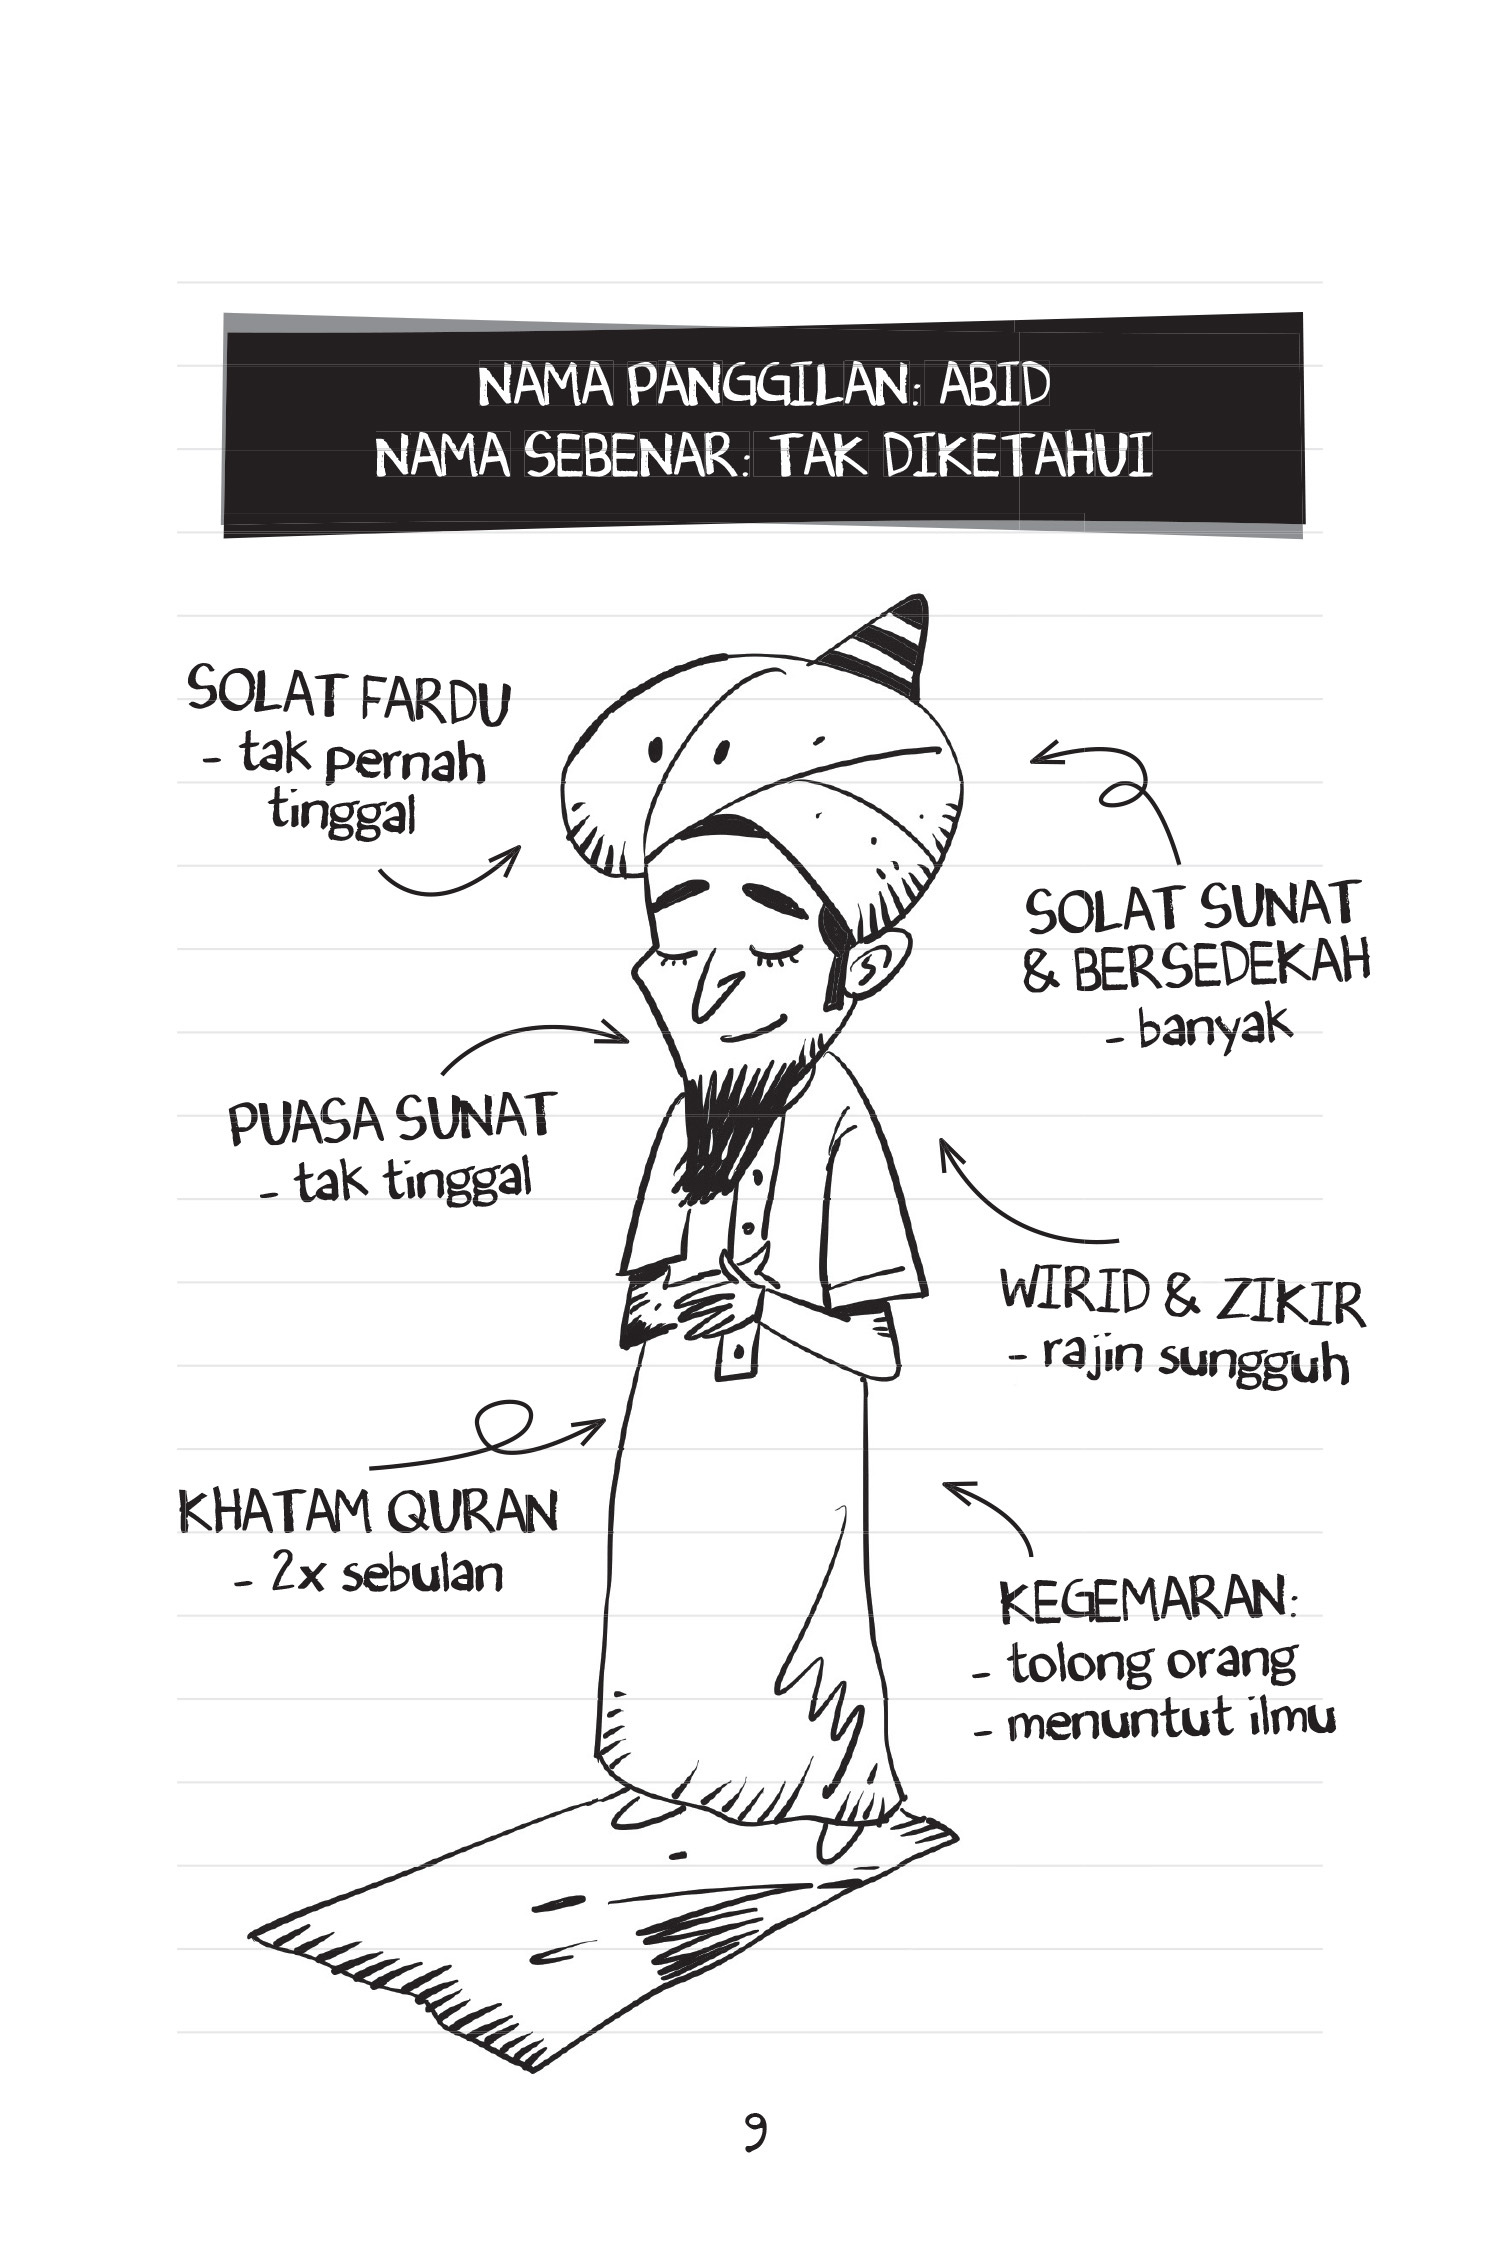 NAMA PANGGILAN: ABID
NAMA SEBENAR: TAK DIKETAHUI
SOLAT FARDU
- tak pernah
tinggal
SOLAT SUNAT
& BERSEDEKAH
- banyak
PUASA SUNAT
- tak tinggal
WIRID & ZIKIR
- rajin sungguh
KHATAM QURAN
- 2x sebulan
KEGEMARAN:
- tolong orang
- menuntut ilmu
9